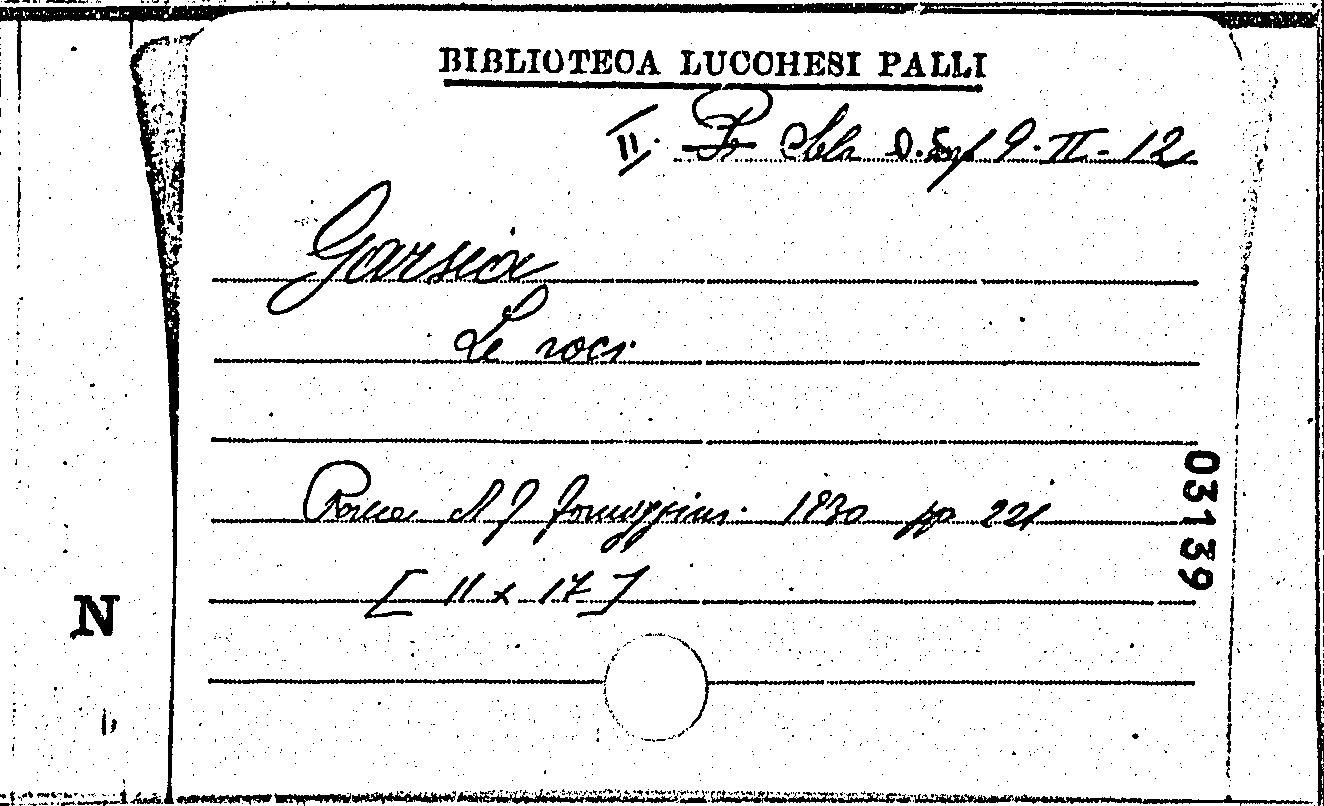 BIBLIOTECA LUCCHESI PALLI
II. Sala 9. II - 12
Garsia
Le voci
Roma A F Formiggini. 1930 pp 221
[11 x 17]
03139
N